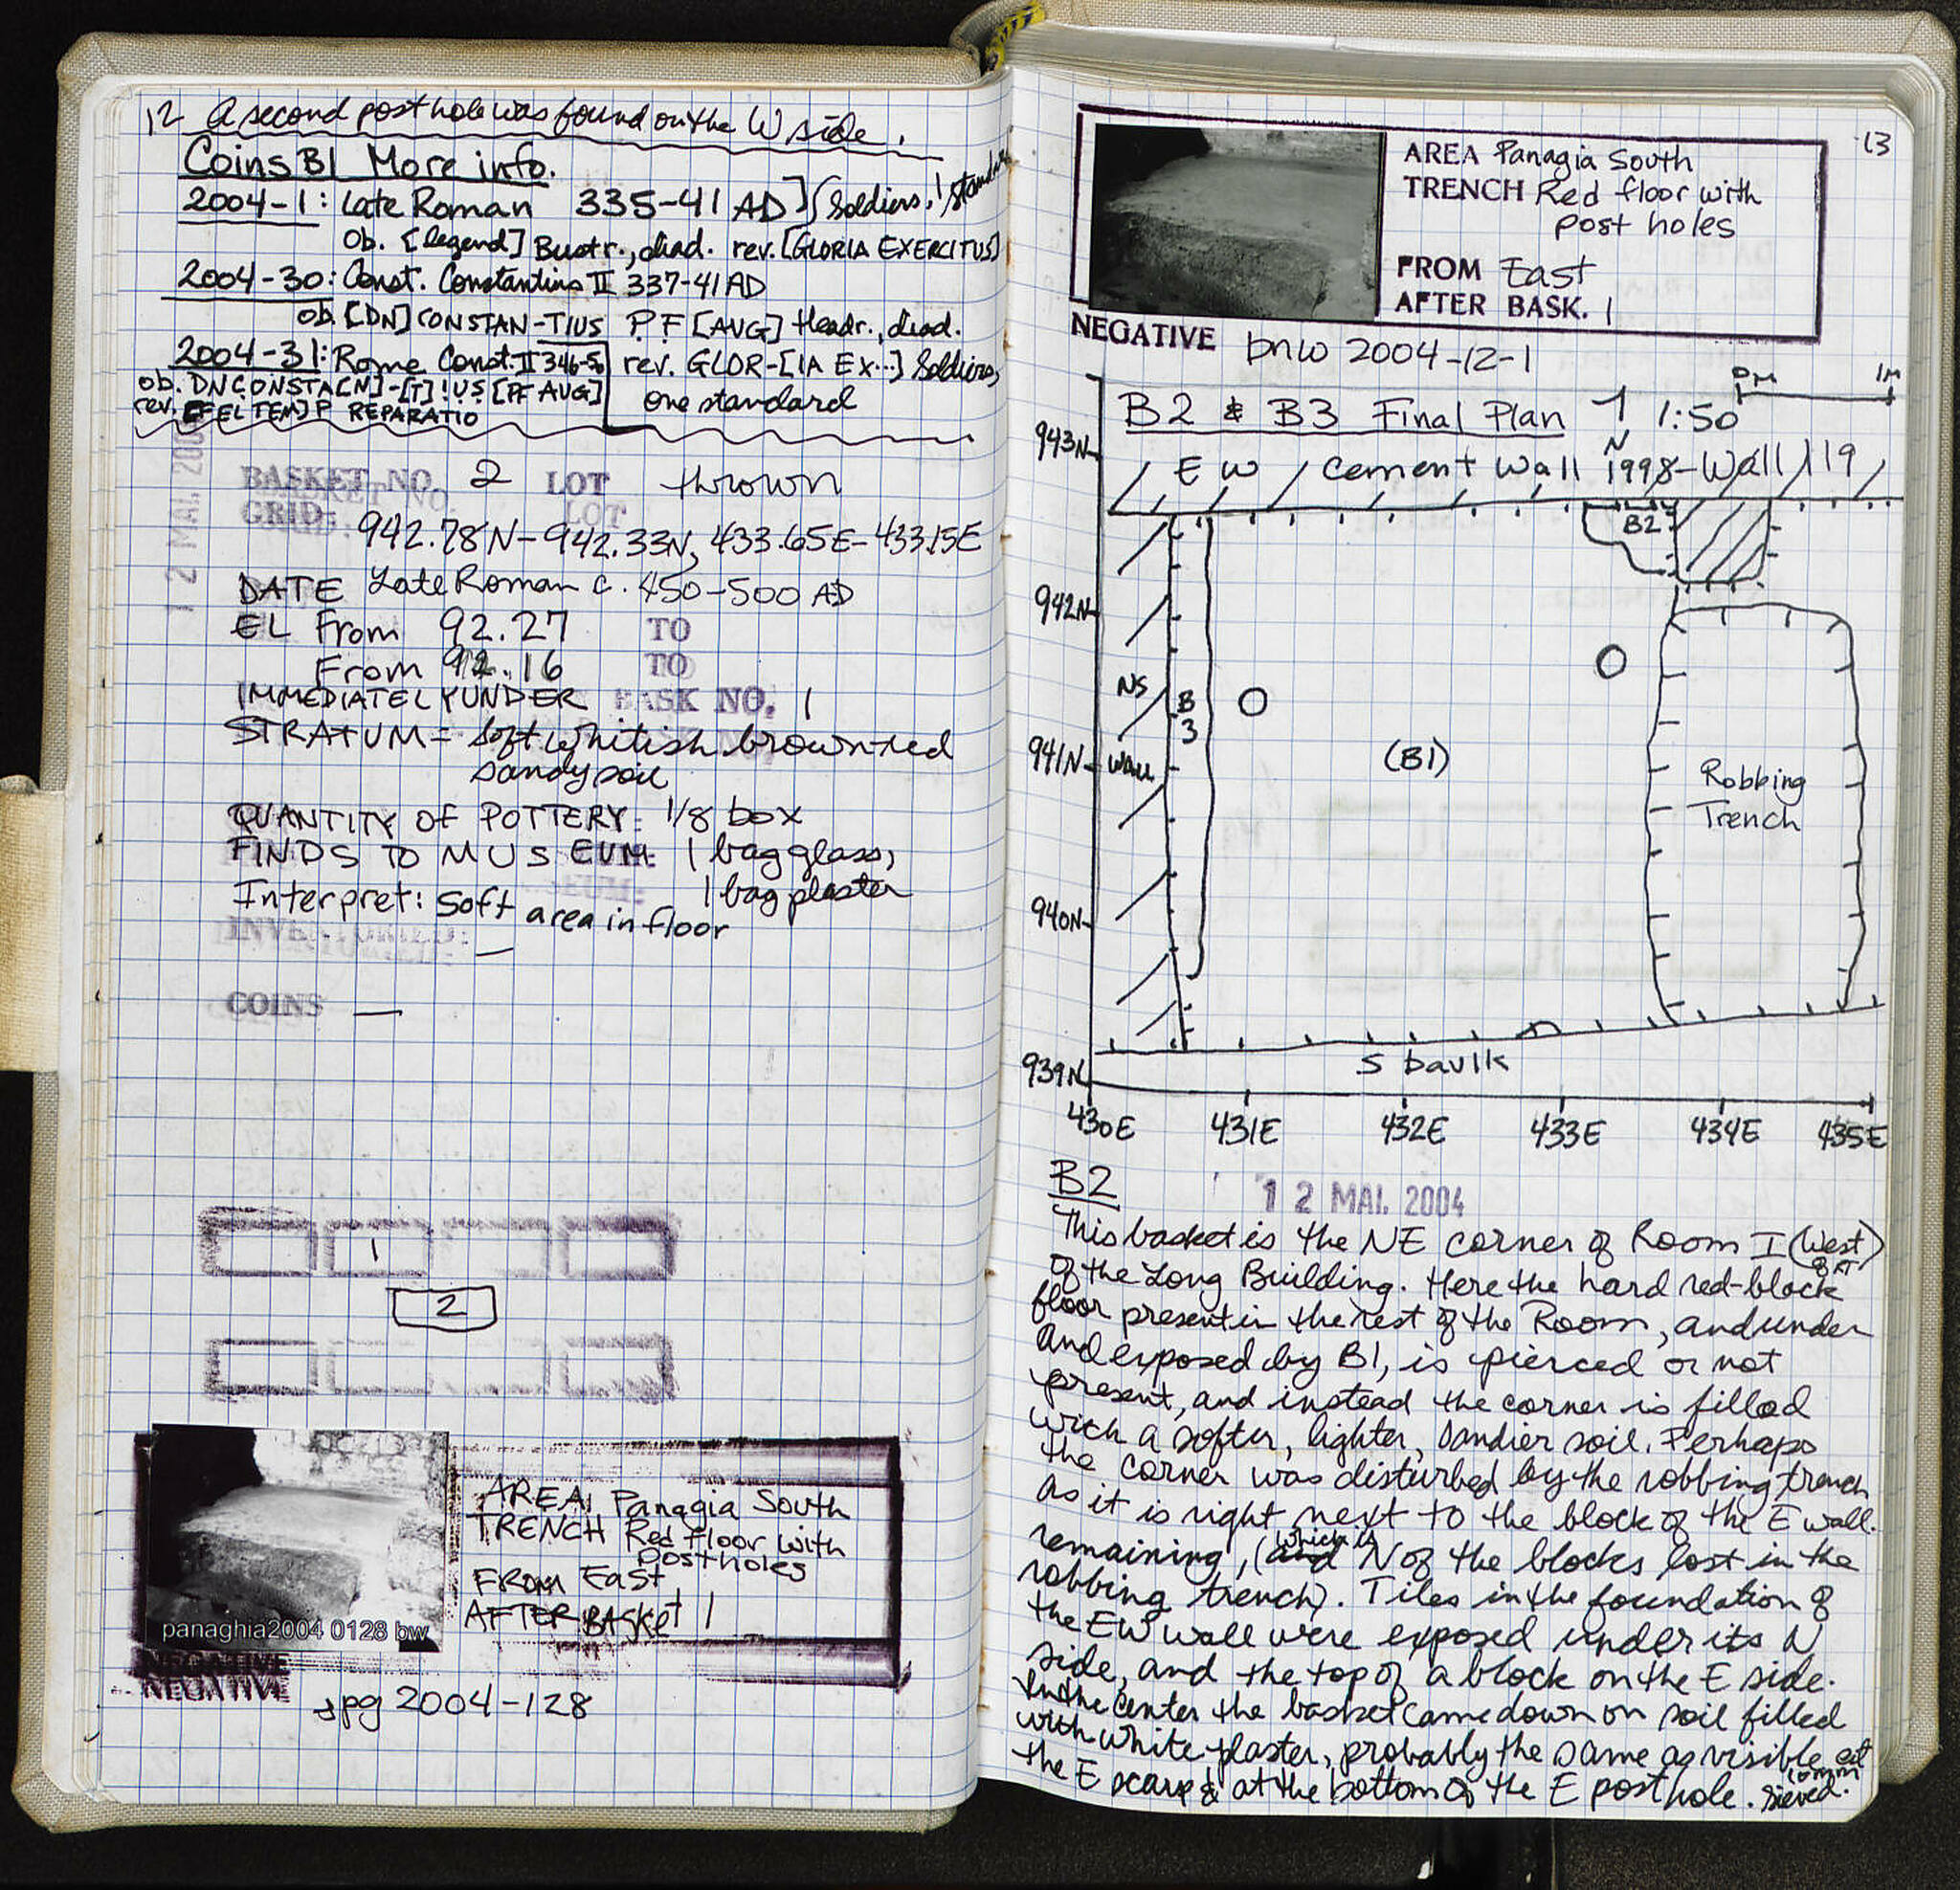 12 A second post hole was found on the W side.
Coins B1 More info.
2004-1: Late Roman 335-41 AD] (Soldiers, 1 standard
Ob. [legend] Bust r., diad. rev. [GLORIA EXERCITUS]
2004-30: Const. Constantius II 337-41 AD
ob. [DN] CONSTAN-TIUS P F [AUG] Head r., diad.
rev. GLOR-[IA EX...] Soldiers,
one standard
2004-31: Rome Const. II 346-5
ob. DN CONSTA[N]-[T]IUS [PF AUG]
rev. [FEL TEM] P REPARATIO
12 MAI. 200
BASKET NO. 2 LOT thrown
GRID: 942.78N-942.33N, 433.65E-433.15E
DATE Late Roman c. 450-500 AD
EL From 92.27 TO
From 92.16 TO
IMMEDIATELY UNDER BASK NO. 1
STRATUM= Soft whitish brown-red
sandy soil
QUANTITY OF POTTERY: 1/8 box
FINDS TO MUSEUM: 1 bag glass,
1 bag plaster
Interpret: Soft area in floor
INVENTORIED: —
COINS —
1
2
AREA: Panagia South
TRENCH Red floor with
Postholes
FROM East
AFTER BASKET 1
panaghia2004 0128 bw
NEGATIVE
jpg 2004-128
13
AREA Panagia South
TRENCH Red floor with
post holes
FROM East
AFTER BASK. 1
NEGATIVE bnw 2004-12-1
0M 1M
B2 & B3 Final Plan N 1:50
943N
E W Cement Wall 1998-Wall 119
B2
942N
NS
B
3
941N
Wall
(B1)
Robbing
Trench
940N
S baulk
939N
430E 431E 432E 433E 434E 435E
B2
12 MAI. 2004
This basket is the NE corner of Room I (West)
of the Long Building. Here the hard red-block
floor present in the rest of the Room, and under
and exposed by B1, is pierced or not
present, and instead the corner is filled
with a softer, lighter, sandier soil. Perhaps
the corner was disturbed by the robbing trench
as it is right next to the block of the E wall
remaining, (which is N of the blocks lost in the
robbing trench). Tiles in the foundation of
the EW wall were exposed under its N
side, and the top of a block on the E side.
In the center the basket came down on soil filled
with white plaster, probably the same as visible at
the E scarp & at the bottom of the E post hole. Sieved. 10mm